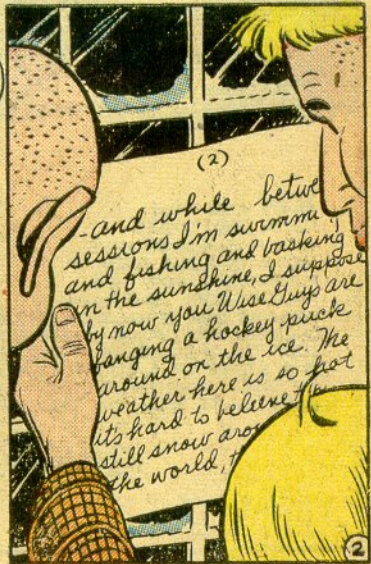 (2)
-and while betwe
sessions I'm swimmi
and fishing and basking
in the sunshine, I suppose
by now you Wise Guys are
banging a hockey puck
around on the ice. The
weather here is so hot
it's hard to beleive t
still snow aro
the world, t
2